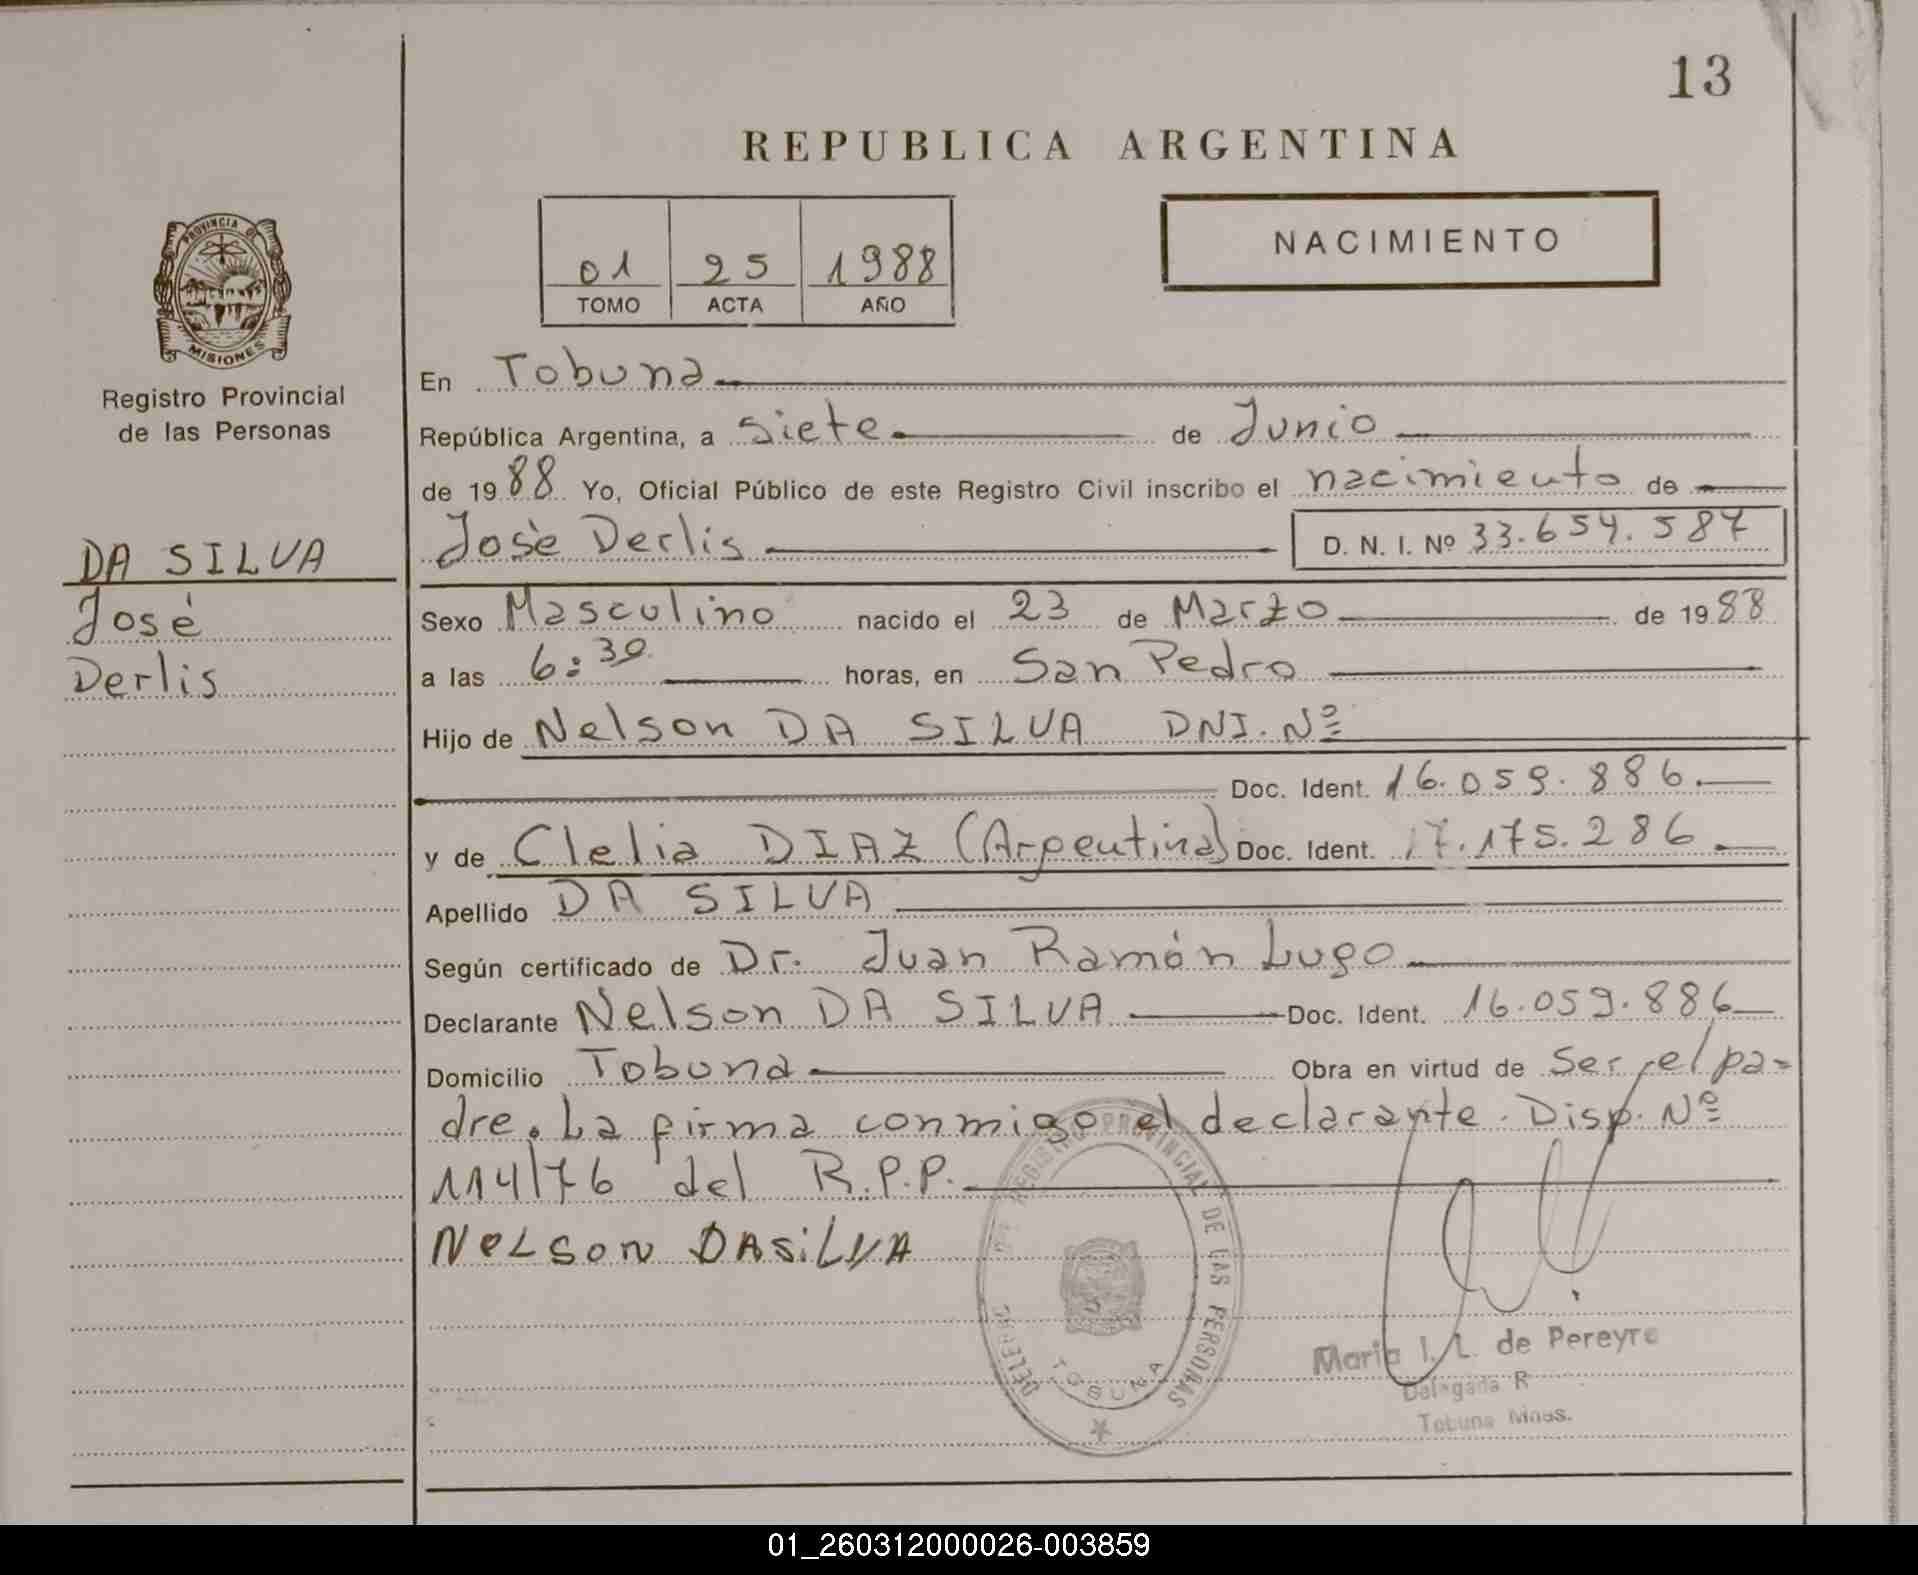 13
REPUBLICA ARGENTINA
01 25 1988
TOMO ACTA AÑO
NACIMIENTO
PROVINCIA DE
MISIONES
Registro Provincial
de las Personas
DA SILVA
José
Derlis
En Tobuna
República Argentina, a Siete de Junio
de 1988 Yo, Oficial Público de este Registro Civil inscribo el nacimiento de
Josè Derlis D. N. I. Nº 33.654.587
Sexo Masculino nacido el 23 de Marzo de 1988
a las 6:30 horas, en San Pedro
Hijo de Nelson DA SILVA DNI. Nº
Doc. Ident. 16.059.886.
y de Clelia DIAZ (Argentina) Doc. Ident. 17.175.286.
Apellido DA SILVA
Según certificado de Dr. Juan Ramón Lugo
Declarante Nelson DA SILVA Doc. Ident. 16.059.886
Domicilio Tobuna Obra en virtud de Ser el pa-
dre. La firma conmigo el declarante. Disp. Nº
114/76 del R.P.P.
NELSON DASiLVA
REGISTRO PROVINCIAL DE LAS PERSONAS
TOBUNA
Maria I. L. de Pereyra
Delegada R
Tobuna Mnes.
01_260312000026-003859